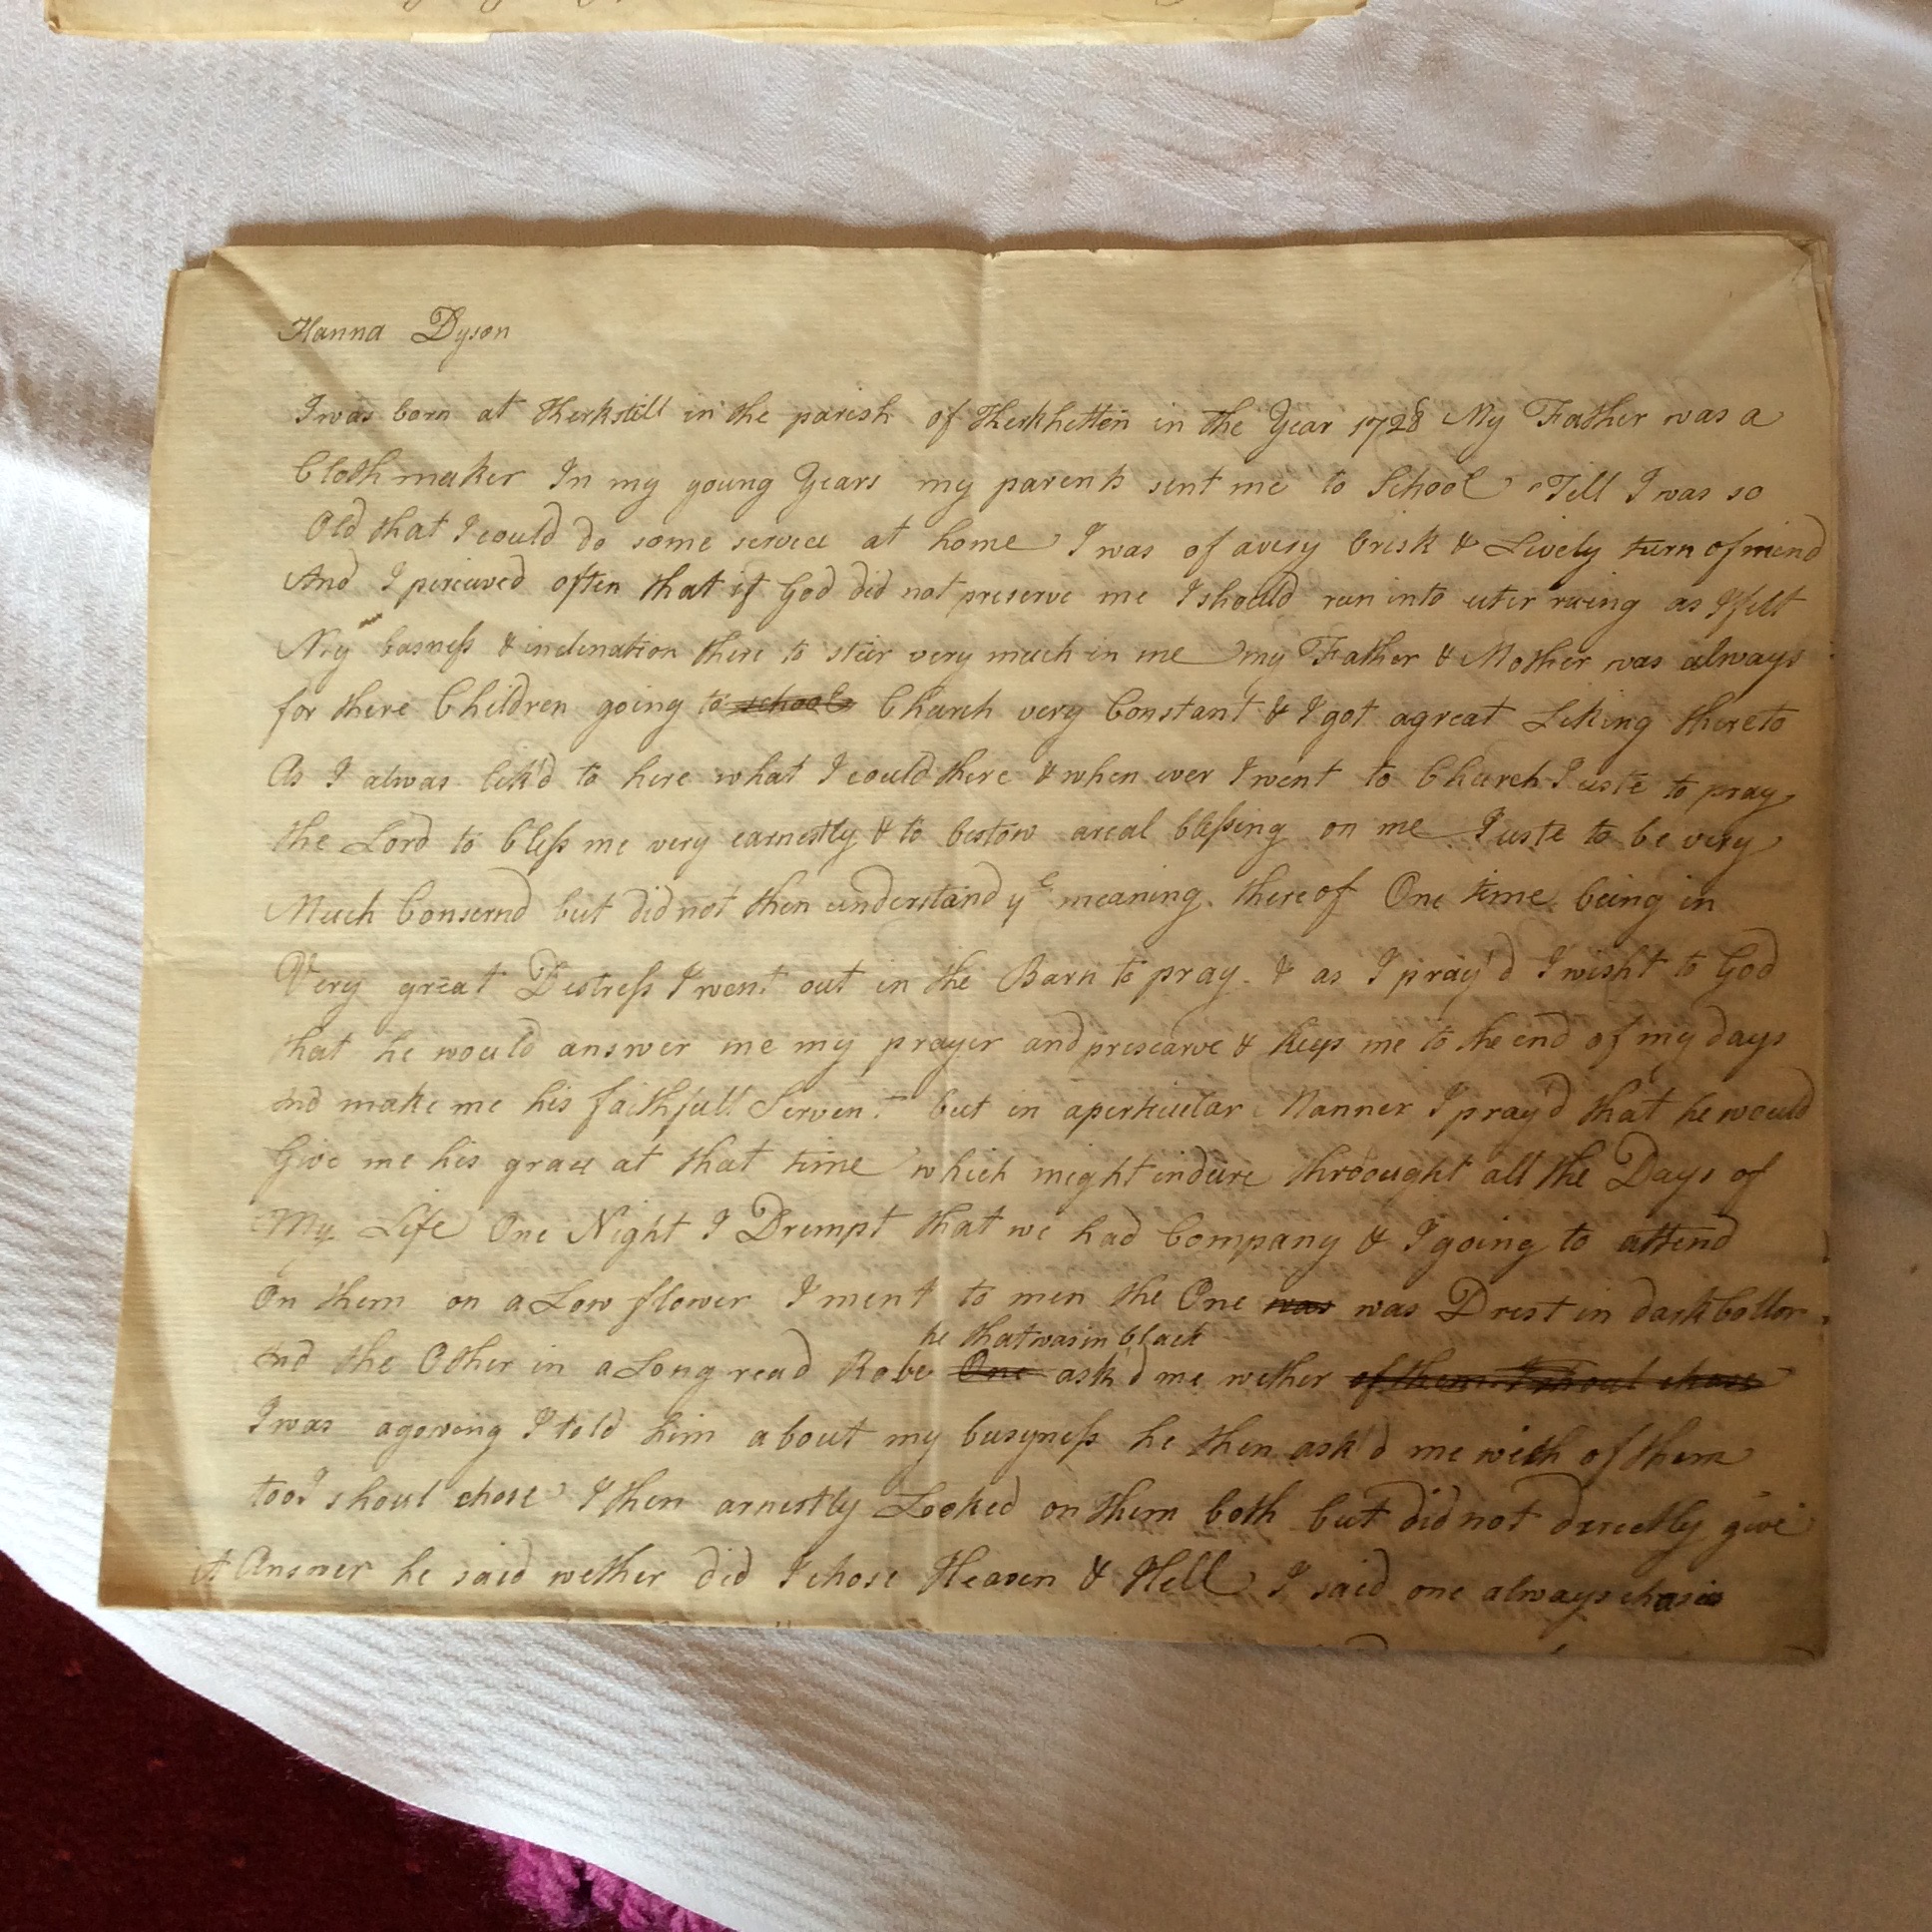 Hanna Dyson
I was born at Therkstill in the parish of Therkhetton in the Year 1728 My Father was a
Clothmaker In my young Years my parents sent me to School Till I was so
Old that I could do some servece at home I was of avery brisk & Lively turn of mind
And I perceived often that if God did not preserve me I should run into uter rueing as I felt
My basness & inclenation there to steir very much in me my Father & Mother was always
for there Children going to school Church very Constant & I got agreat Likeing thereto
As I alwas lik'd to here what I could there & when ever I went to Church I uste to pray
the Lord to bless me very earnestly & to bestow areal blessing on me I uste to be very
Much Consernd but did not then understand ye meaning thereof One time being in
Very great Distress I went out in the Barn to pray & as I pray'd I wisht to God
that he would answer me my prayer and presearve & keep me to the end of my days
and make me his faithfull Servent but in apertiicular Manner I pray'd that he would
Give me his grace at that time which might indure throought all the Days of
My Life One Night I Drempt that we had Company & I going to attend
On them on a Low flower I ment to men the One was was Drest in dark Collor
he that was in black
and the Other in a Long read Robe One ask'd me wether of them I shoul chose
I was agoeing I told him about my busyness he then ask'd me wich of them
too I shoul chose I then arnestly Looked on them both but did not directly give
Answer he said wether did I chose Heaven & Hell I said one always